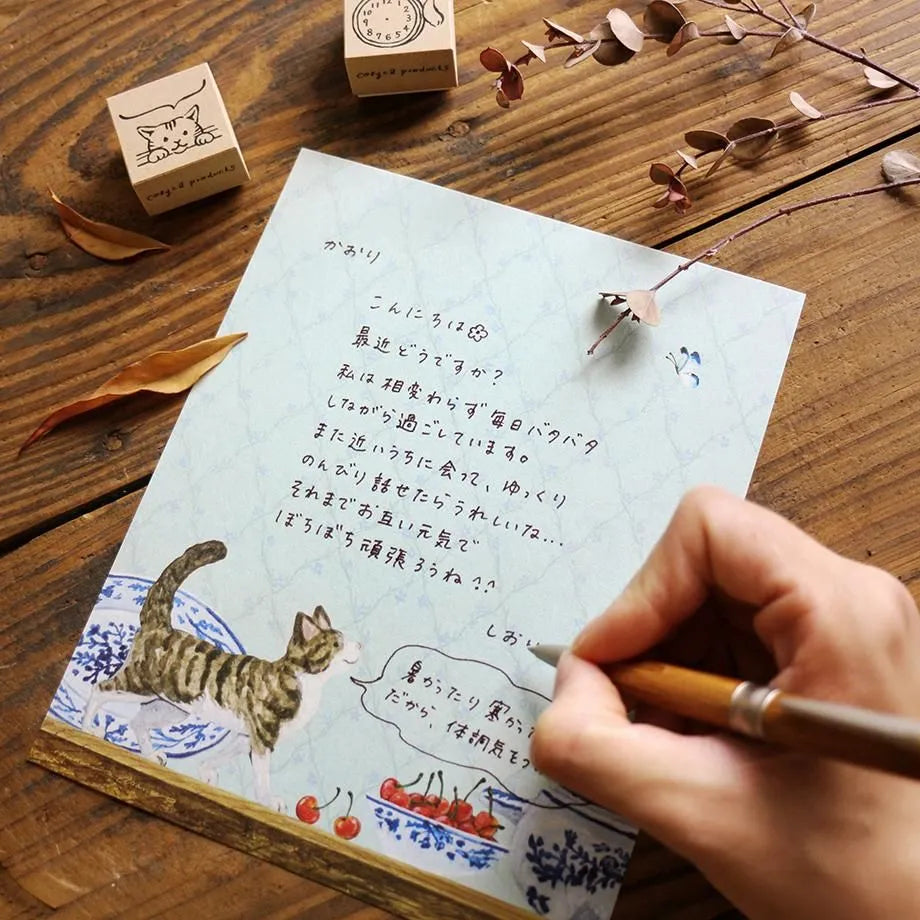 12
1
2
3
4
5
6
7
8
9
10
11
cozyca products
cozyca products
かおり
こんにちは
最近どうですか？
私は相変わらず毎日バタバタ
しながら過ごしています。
また近いうちに会って、ゆっくり
のんびり話せたらうれしいな…
それまでお互い元気で
ぼちぼち頑張ろうね!!
しおり
暑かったり寒かった
だから、体調気をつ